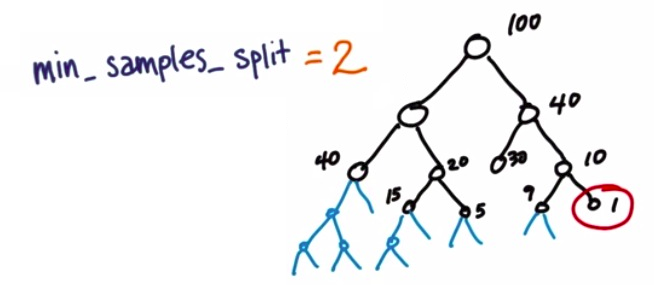 100
min_samples_split = 2
40
40
20
30
10
15
5
9
1